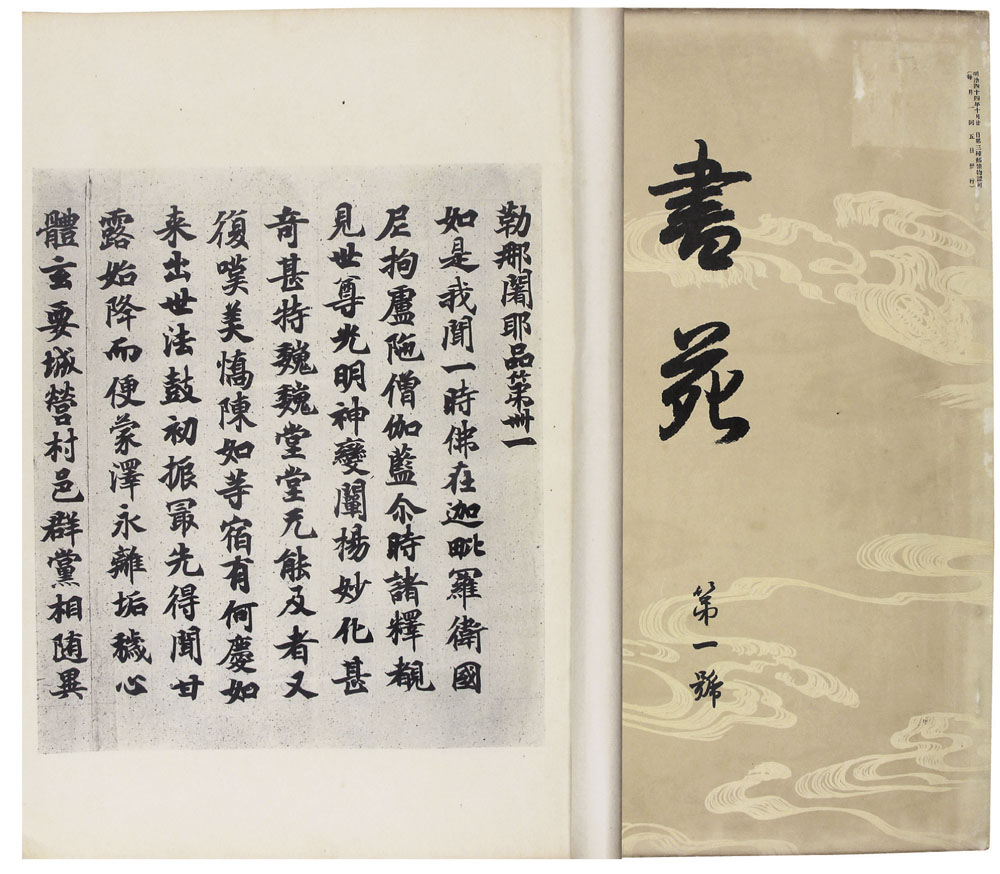 明治四十四年十月廿　日第三種郵便物認可
（每月一回五日發行）
書苑
第一號
勒那闍耶品苐卌一
如是我聞一時佛在迦毗羅衛國
尼拘盧陁僧伽藍尒時諸釋覩
見世尊光明神變闡揚妙化甚
奇甚特魏魏堂堂无能及者又
復嘆美憍陳如等宿有何慶如
来出世法鼓初振冣先得聞甘
露始降而便蒙澤永離垢穢心
體玄要城營村邑群黨相随異